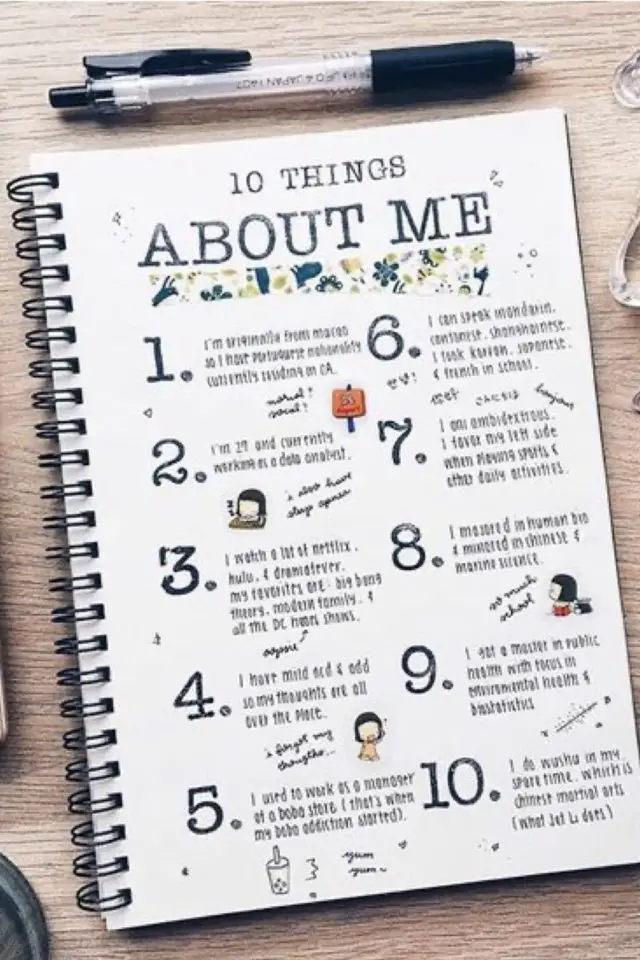 10 THINGS
ABOUT ME
1.
I'm originally from macao
so I have portuguese nationality
currently residing in CA.
2.
I'm 29 and currently
working as a data analyst.
i also have
sleep apnea
3.
I watch a lot of netflix,
hulu, & dramafever.
my favorites are: big bang
theory, modern family, &
all the DC heroes shows.
4.
I have mild ocd & add
so my thoughts are all
over the place.
i forgot my
thoughts...
5.
I used to work as a manager
at a boba store (that's when
my boba addiction started).
yum
yum~
6.
I can speak mandarin,
cantonese, shanghainese.
I took korean, japanese,
& french in school.
안녕!
こんにちは
bonjour
7.
I am ambidextrous.
I favor my left side
when playing sports &
other daily activities.
8.
I majored in human bio
& minored in chinese &
marine science.
so much
school
9.
I got a master in public
health with focus in
enviromental health &
biostatistics
10.
I do wushu in my
spare time, which is
chinese martial arts
(what Jet Li does)